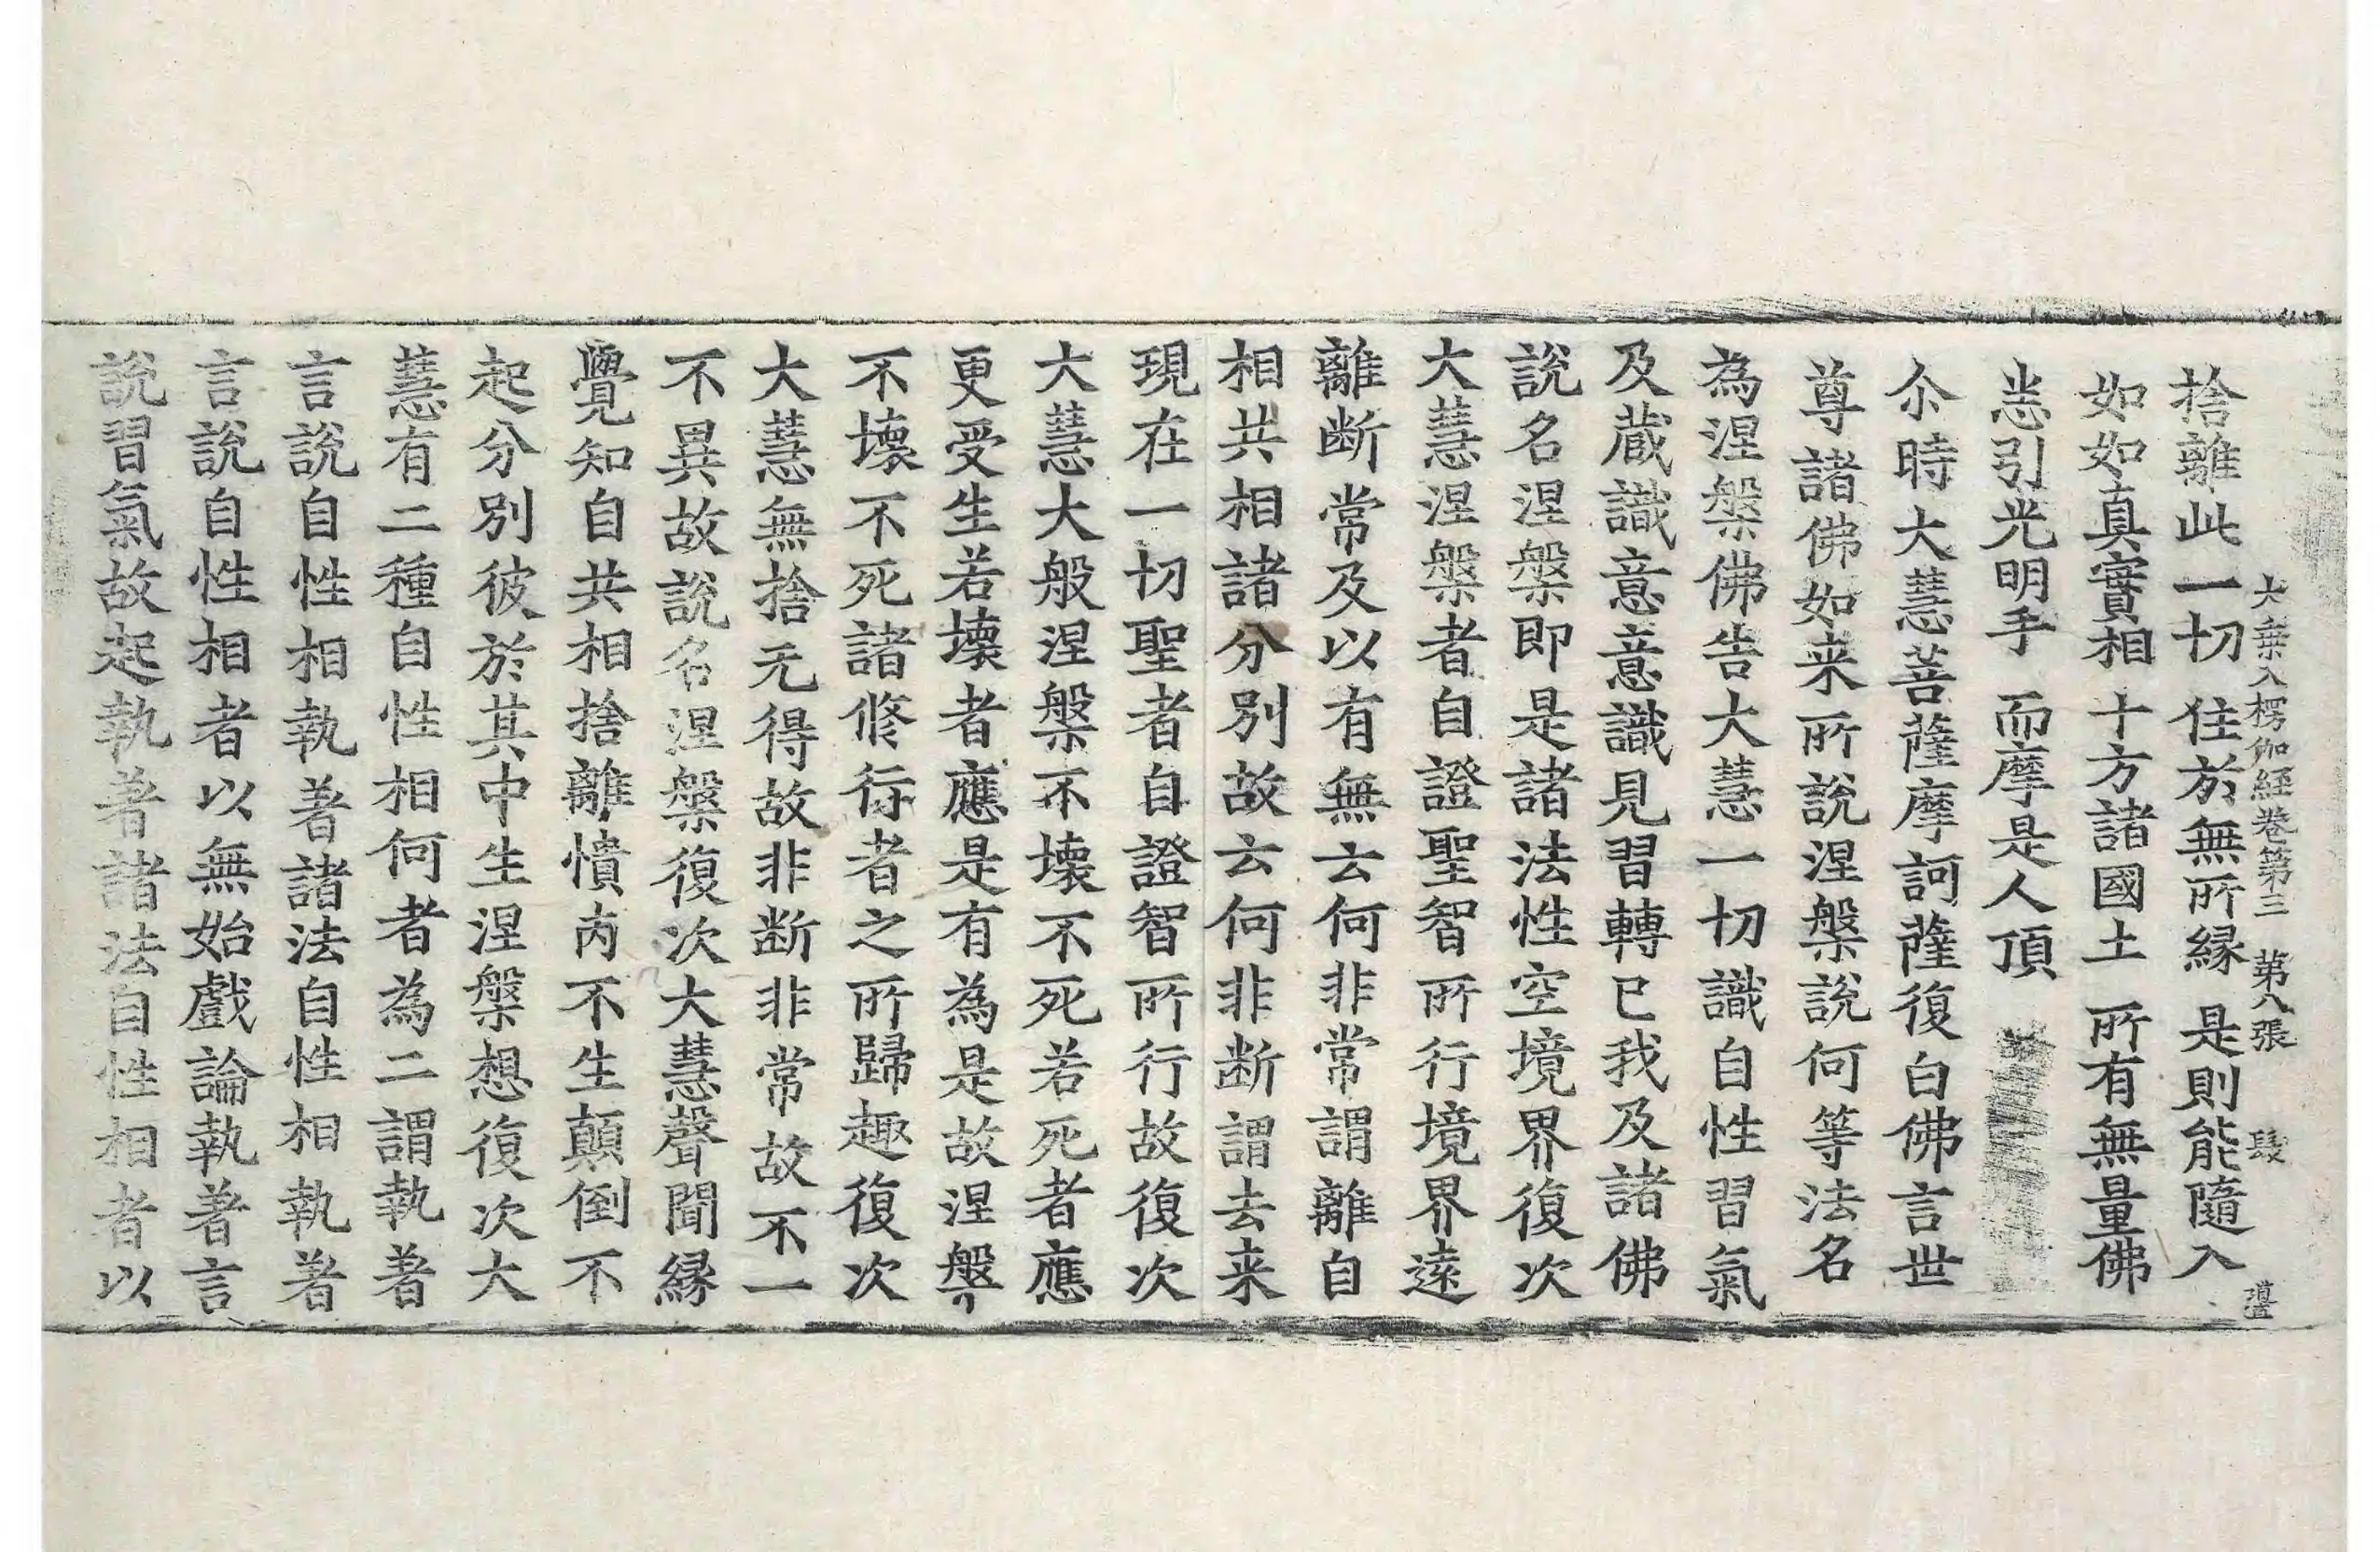 大乗入楞伽經卷第三　第八張　髲
捨離此一切　住於無所縁　是則能隨入
如如真實相　十方諸國土　所有無量佛
悉引光明手　而摩是人頂
尒時大慧菩薩摩訶薩復白佛言世
尊諸佛如来所說涅槃說何等法名
為涅槃佛告大慧一切識自性習氣
及蔵識意意識見習轉已我及諸佛
說名涅槃即是諸法性空境界復次
大慧涅槃者自證聖智所行境界遠
離断常及以有無云何非常謂離自
相共相諸分別故云何非断謂去来
現在一切聖者自證智所行故復次
大慧大般涅槃不壊不死若死者應
更受生若壊者應是有為是故涅槃
不壊不死諸修行者之所歸趣復次
大慧無捨无得故非断非常故不一
不異故說名涅槃復次大慧聲聞縁
覺知自共相捨離憒丙不生顛倒不
起分別彼於其中生涅槃想復次大
慧有二種自性相何者為二謂執著
言說自性相執著諸法自性相執著
言說自性相者以無始戲論執著言
說習氣故起執著諸法自性相者以